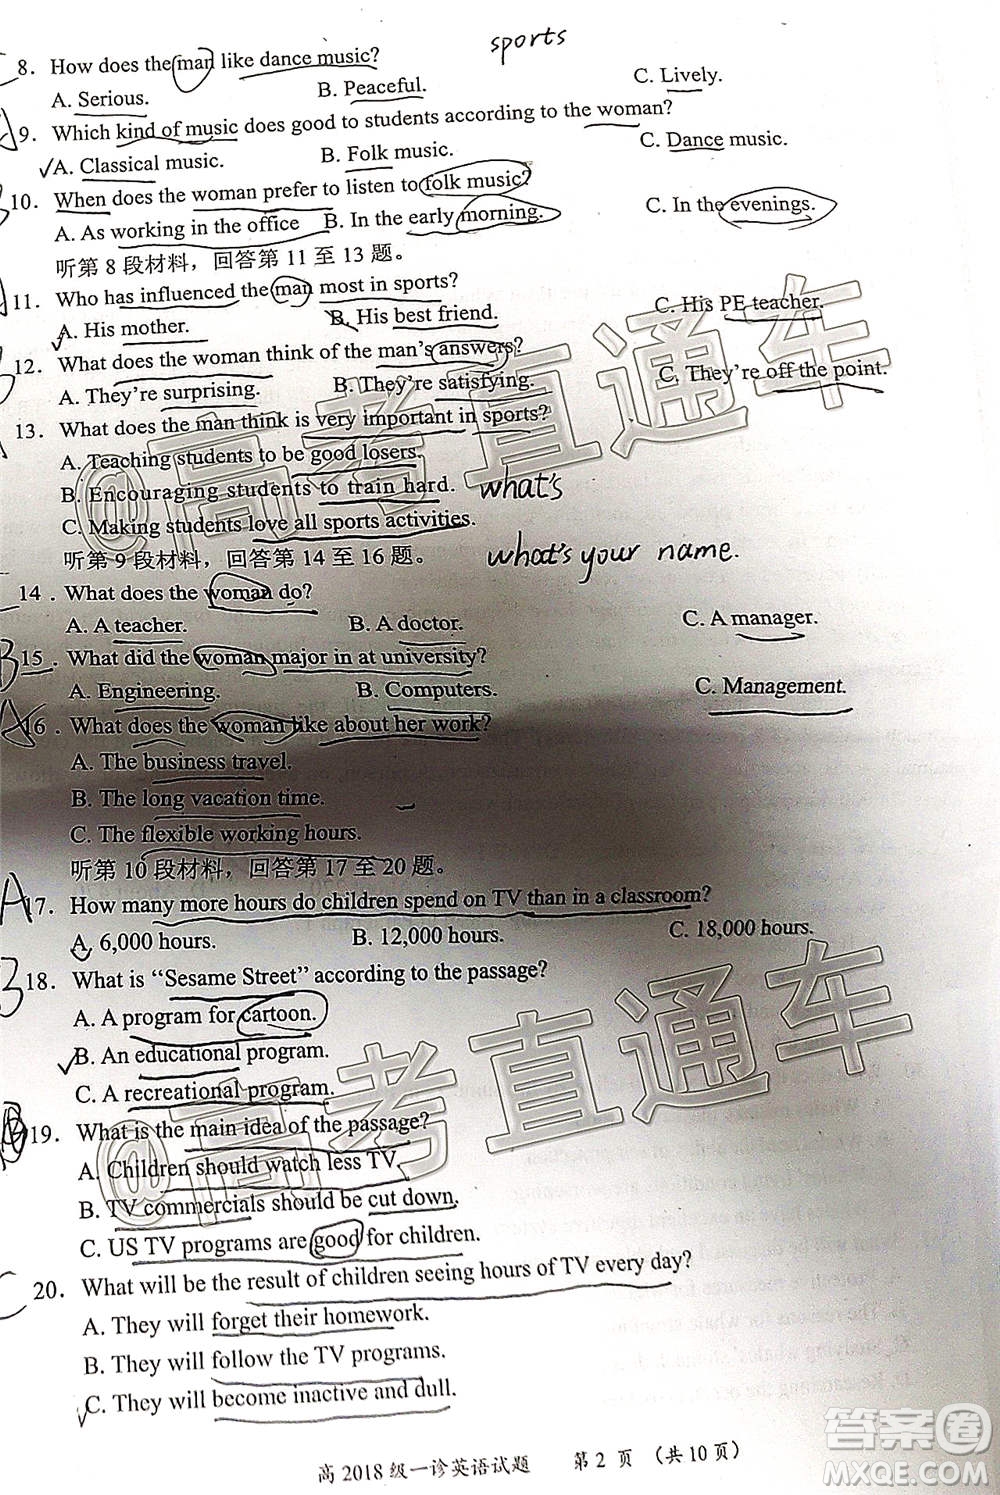 sports
8. How does the man like dance music?
A. Serious. B. Peaceful. C. Lively.
9. Which kind of music does good to students according to the woman?
A. Classical music. B. Folk music. C. Dance music.
10. When does the woman prefer to listen to folk music?
A. As working in the office B. In the early morning. C. In the evenings.
听第 8 段材料，回答第 11 至 13 题。
11. Who has influenced the man most in sports?
A. His mother. B. His best friend. C. His PE teacher.
12. What does the woman think of the man's answers?
A. They're surprising. B. They're satisfying. C. They're off the point.
13. What does the man think is very important in sports?
A. Teaching students to be good losers.
B. Encouraging students to train hard. what's
C. Making students love all sports activities.
听第 9 段材料，回答第 14 至 16 题。 what's your name.
14. What does the woman do?
A. A teacher. B. A doctor. C. A manager.
B 15. What did the woman major in at university?
A. Engineering. B. Computers. C. Management.
A 16. What does the woman like about her work?
A. The business travel.
B. The long vacation time.
C. The flexible working hours.
听第 10 段材料，回答第 17 至 20 题。
A 17. How many more hours do children spend on TV than in a classroom?
A. 6,000 hours. B. 12,000 hours. C. 18,000 hours.
B 18. What is “Sesame Street” according to the passage?
A. A program for cartoon.
B. An educational program.
C. A recreational program.
B 19. What is the main idea of the passage?
A. Children should watch less TV.
B. TV commercials should be cut down.
C. US TV programs are good for children.
C 20. What will be the result of children seeing hours of TV every day?
A. They will forget their homework.
B. They will follow the TV programs.
C. They will become inactive and dull.
高 2018 级一诊英语试题 第 2 页 （共 10 页）
@高考直通车
@高考直通车
答案圈
MXQE.COM